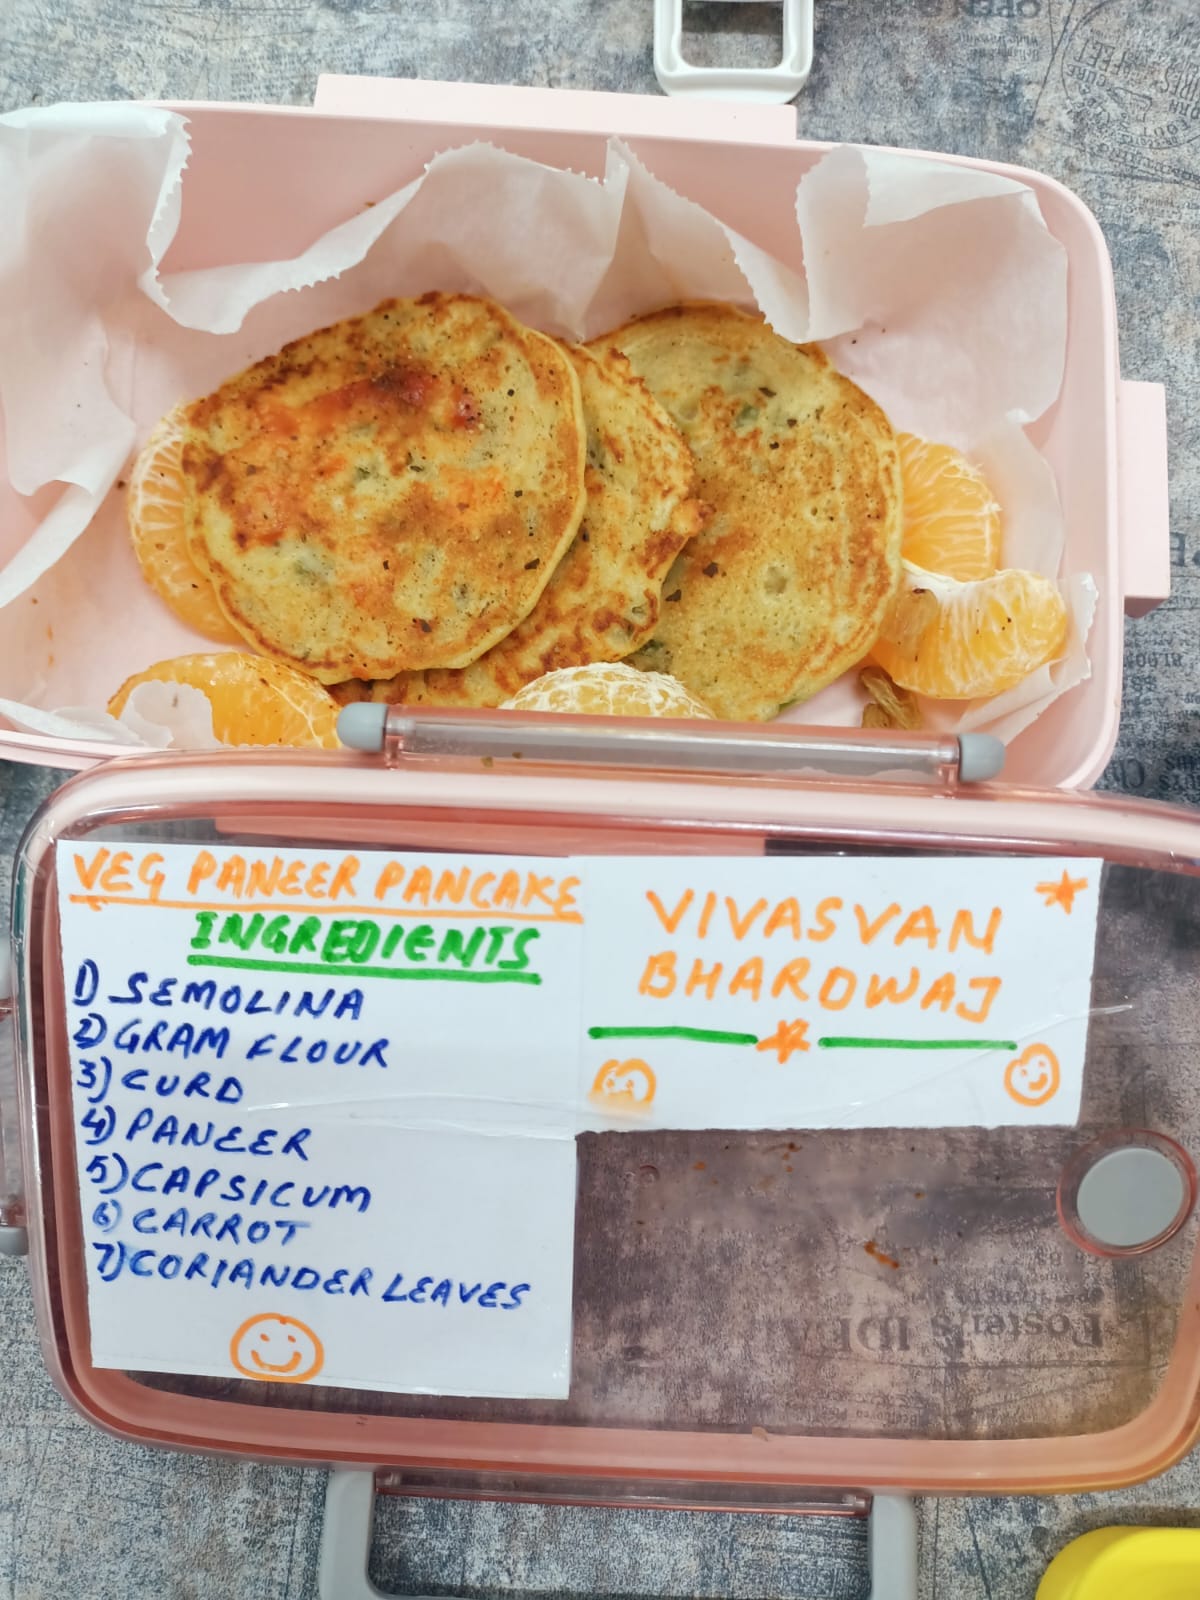 VEG PANEER PANCAKE
INGREDIENTS
1) SEMOLINA
2) GRAM FLOUR
3) CURD
4) PANEER
5) CAPSICUM
6) CARROT
7) CORIANDER LEAVES
VIVASVAN
BHARDWAJ